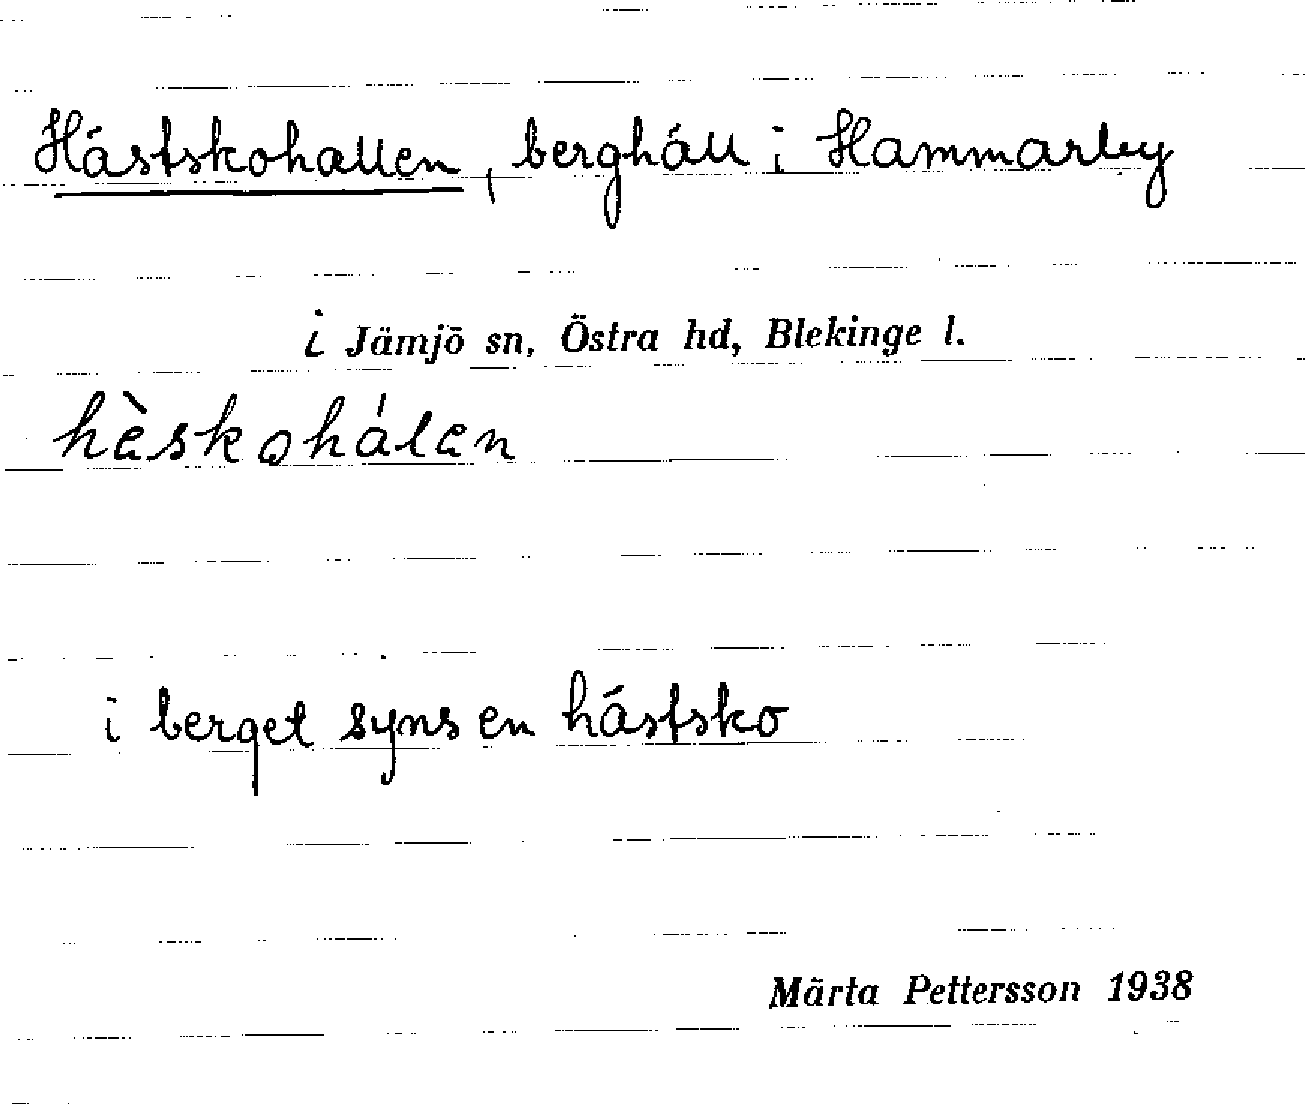 Hästskohallen, berghäll i Hammarby
i Jämjö sn, Östra hd, Blekinge l.
hèskohálen
i berget syns en hästsko
Märta Pettersson 1938